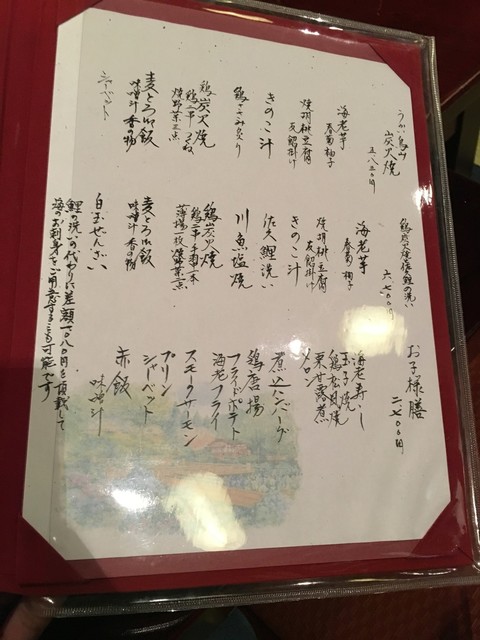 うかい鳥山
炭火焼
五、八三〇円
海老芋
春菊 柚子
焼胡桃豆腐
友餡掛け
きのこ汁
鶏ささみ炙り
鶏炭火焼
鶏一串 つくね
焼野菜三点
麦とろ御飯
味噌汁 香の物
シャーベット
鶏炭火焼 信州鯉の洗い
六、七〇〇円
海老芋
春菊 柚子
焼胡桃豆腐
友餡掛け
きのこ汁
佐久鯉洗い
川魚塩焼
鶏炭火焼
鶏一串 手羽一本
麦とろ御飯
味噌汁 香の物
白玉ぜんざい
お子様膳
二、七〇〇円
海老寿し
玉子焼
鶏松風焼
栗甘露煮
メロン
煮込ハンバーグ
鶏唐揚
フライドポテト
海老フライ
スモークサーモン
プリン
シャーベット
赤飯
味噌汁
鯉の洗いの代わりに差額一、〇八〇円を頂戴して
海のお刺身をご用意することも可能です